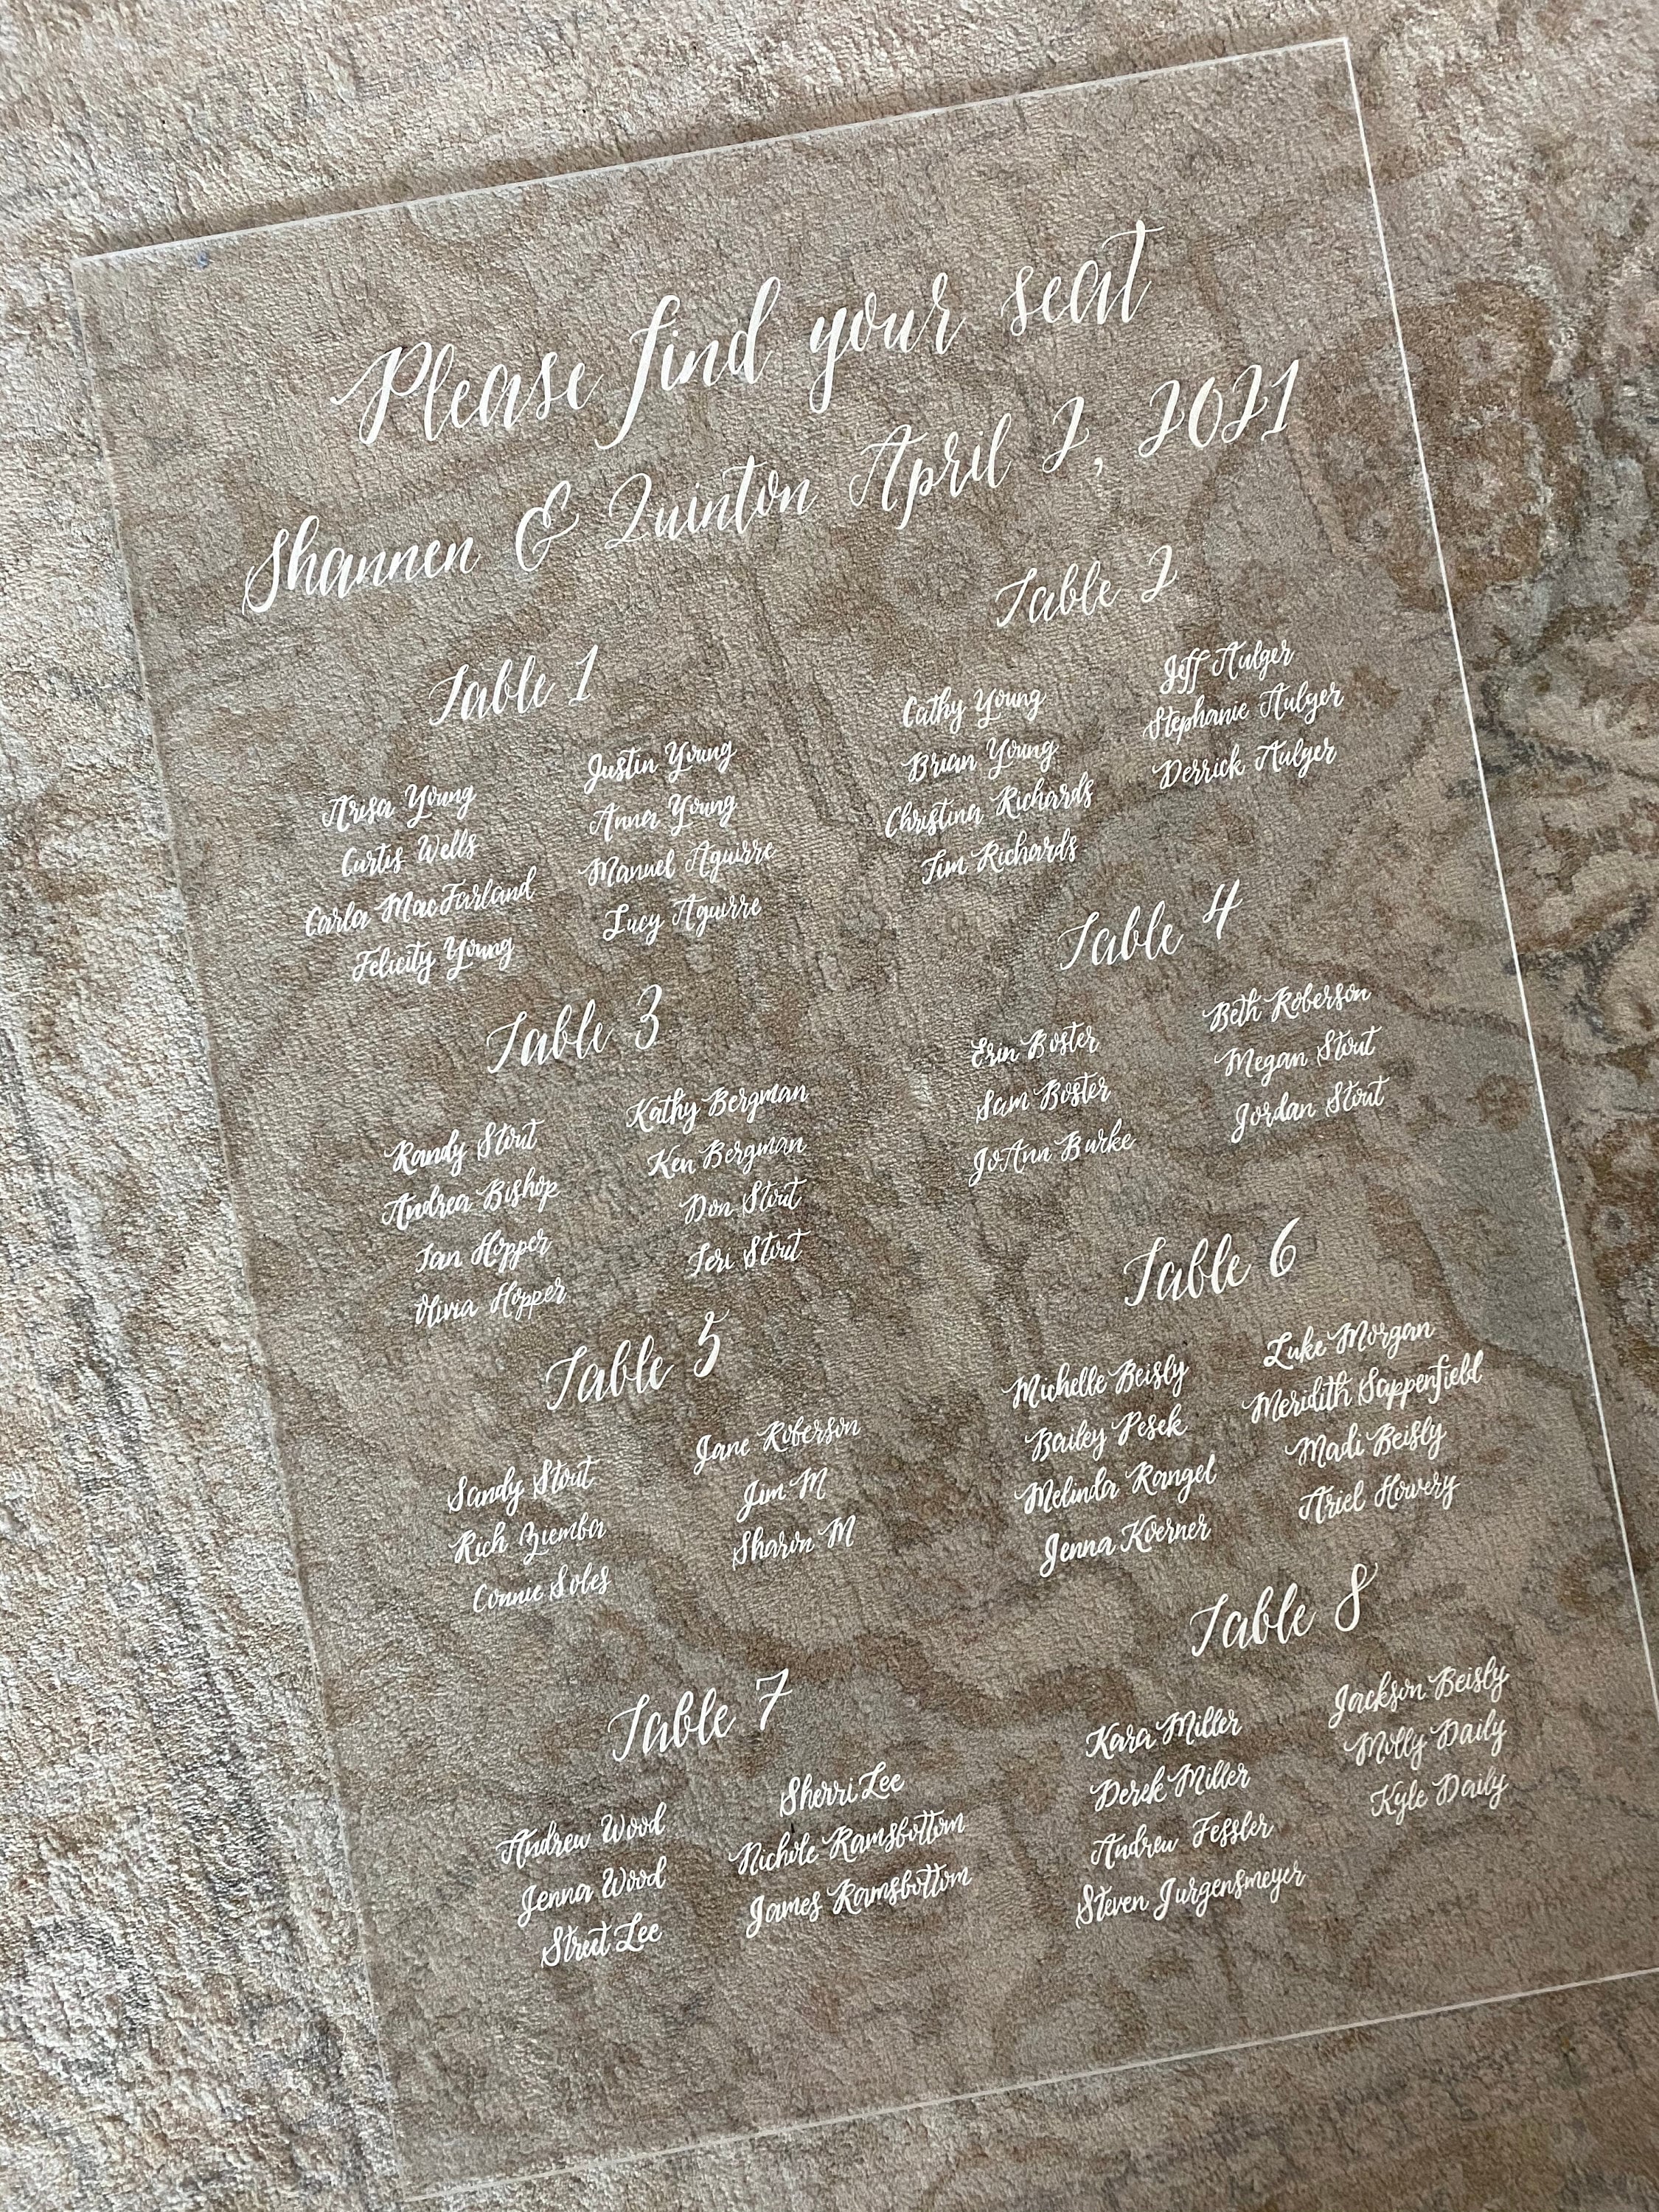 Please find your seat
Shannen & Quinton April 2, 2021
Table 1
Arisa Young
Curtis Wells
Carla MacFarland
Felicity Young
Justin Young
Anna Young
Manuel Aguirre
Lucy Aguirre
Table 2
Cathy Young
Brian Young
Christina Richards
Tim Richards
Jeff Aulger
Stephanie Aulger
Derrick Aulger
Table 3
Randy Stout
Andrea Bishop
Ian Hopper
Olivia Hopper
Kathy Bergman
Ken Bergman
Don Stout
Teri Stout
Table 4
Erin Boster
Sam Boster
JoAnn Burke
Beth Roberson
Megan Stout
Jordan Stout
Table 5
Sandy Stout
Rich Ziemba
Connie Soles
Jane Roberson
Jim M
Sharon M
Table 6
Michelle Beisly
Bailey Pesek
Melinda Rangel
Jenna Koerner
Luke Morgan
Meridith Sappenfield
Madi Beisly
Ariel Howery
Table 7
Andrew Wood
Jenna Wood
Street Lee
Sherri Lee
Nichole Ramsbottom
James Ramsbottom
Table 8
Kara Miller
Derek Miller
Andrew Fessler
Steven Jurgensmeyer
Jackson Beisly
Molly Daily
Kyle Daily